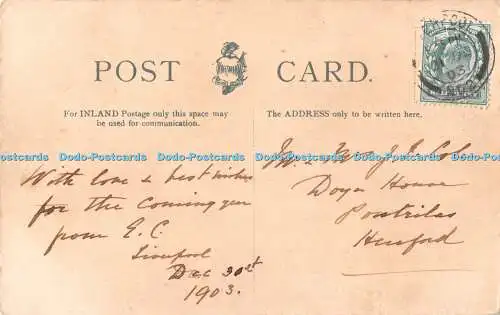 POST CARD.
For INLAND Postage only this space may
be used for communication.
The ADDRESS only to be written here.
With love & best wishes
for the coming year
from E.C.
Liverpool
Dec 30st
1903.
Mr & Mrs J
House
Pontrilas
Hereford
Dodo-Postcards Dodo-Postcards Dodo-Postcards Dodo-Postcards Dodo-Postcards